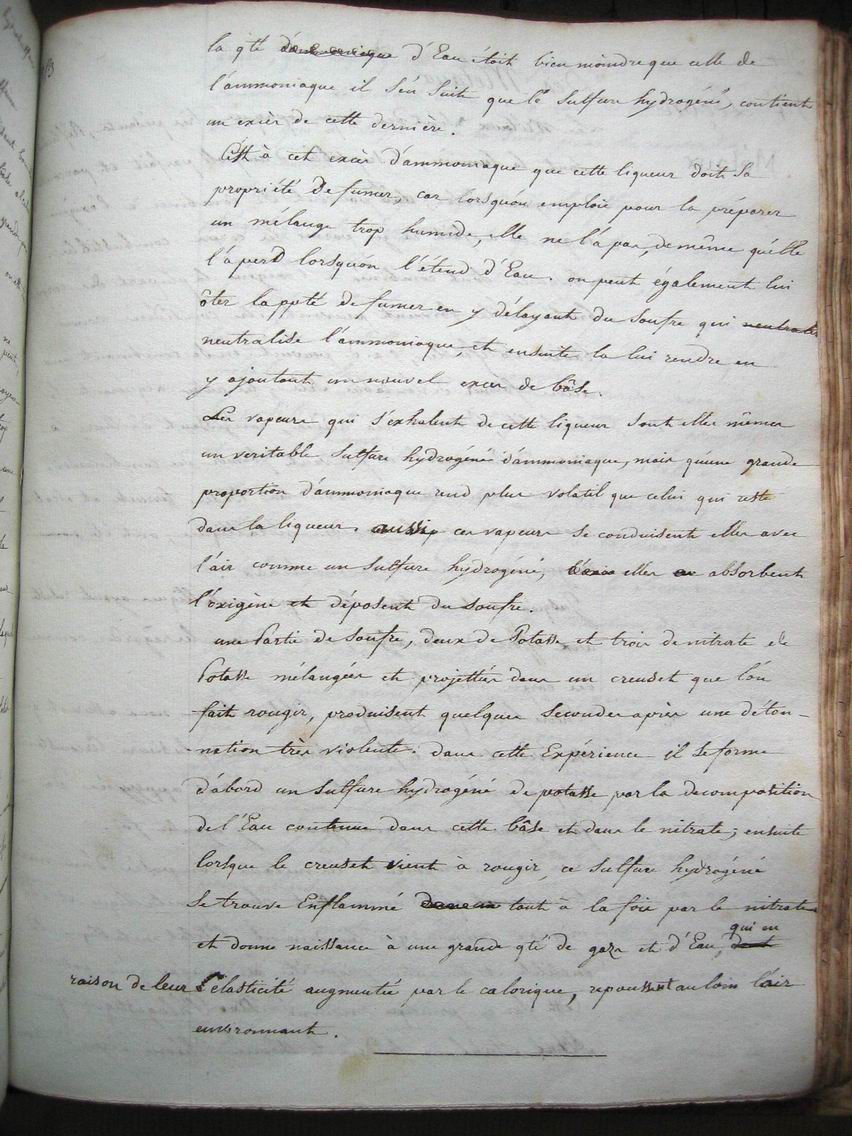 la qté d'ammoniaque d'Eau étoit bien moindre que celle de
l'ammoniaque il s'en suit que le sulfure hydrogéné, contient
un excès de cette dernière.
C'est à cet excès d'ammoniaque que cette liqueur doit sa
propriété de fumer, car lorsqu'on emploie pour la préparer
un mélange trop humide, elle ne l'a pas, de même qu'elle
l'a perd lorsqu'on l'étend d'Eau. on peut également lui
ôter la ppté de fumer en y délayant du soufre qui neutralise
neutralise l'ammoniaque, et ensuite la lui rendre en
y ajoutant un nouvel excès de bâse.
Les vapeurs qui s'exhalent de cette liqueur sont elles mêmes
un veritable sulfure hydrogéné d'ammoniaque, mais qu'une grande
proportion d'ammoniaque rend plus volatil que celui qui reste
dans la liqueur. aussi ces vapeurs se conduisent elles avec
l'air comme un sulfure hydrogéné, elles en absorbent
l'oxigène et déposent du soufre.
une Partie de soufre, deux de Potasse et trois de nitrate de
Potasse mélangées et projettées dans un creuset que l'on
fait rougir, produisent quelques secondes après une déton-
nation très violente. dans cette Expérience il se forme
d'abord un sulfure hydrogéné de potasse par la decomposition
de l'Eau contenue dans cette bâse et dans le nitrate; ensuite
lorsque le creuset vient à rougir, ce sulfure hydrogéné
se trouve Enflammé tout à la fois par le nitrate
et donne naissance à une grande qté de gazs et d'Eau, dont qui en
raison de leur élasticité augmentée par le calorique, repoussent au loin l'air
environnant.